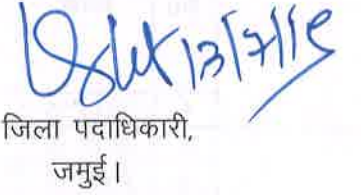 13/7/18
जिला पदाधिकारी,
जमुई।